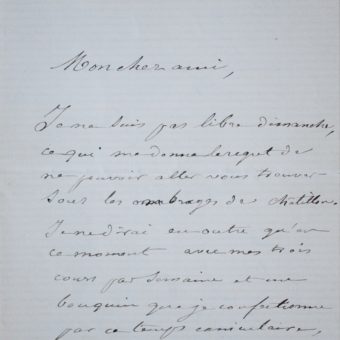 Mon cher ami,
Je ne suis pas libre dimanche,
ce qui me donne le regret de
ne pouvoir aller vous trouver
sous les ombrages de Chatillon.
Je vous dirai en outre qu'en
ce moment avec mes trois
cours par semaine et une
bouquin que je confectionne
par ce temps caniculaire,